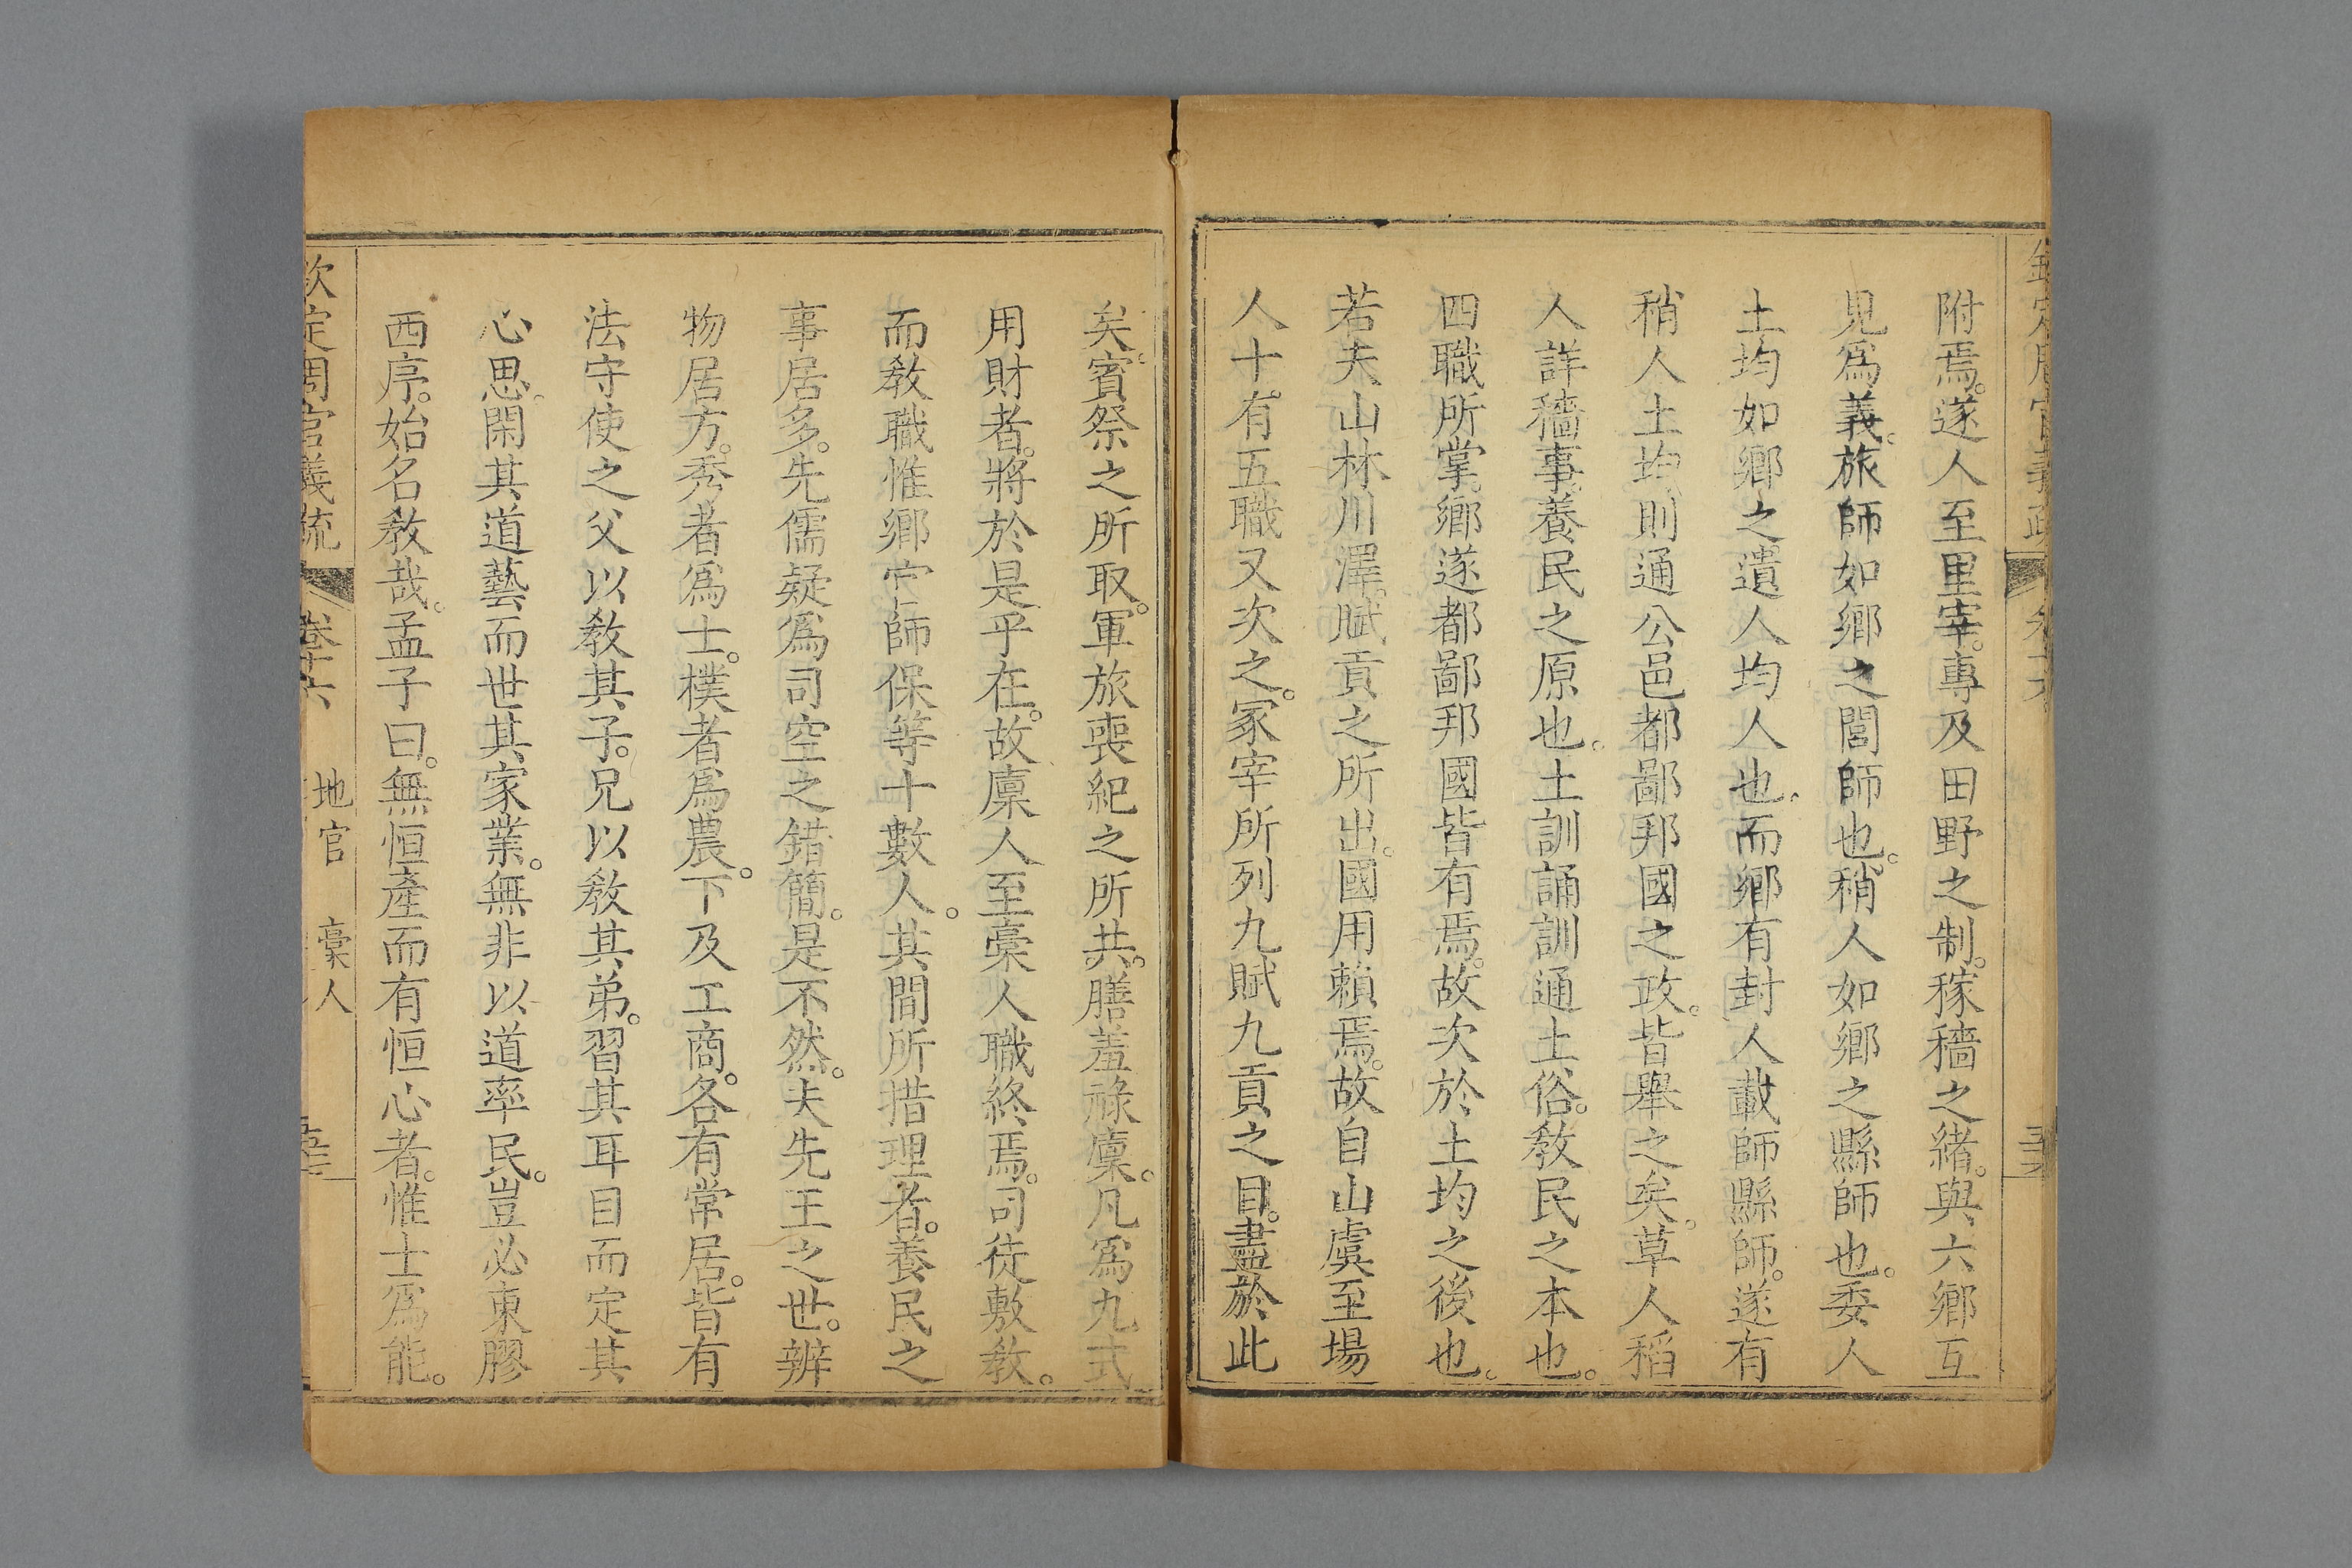 附焉。遂人至里宰。專及田野之制。稼穡之緒。與六鄉互
見爲義。旅師如鄉之閭師也。稍人如鄉之縣師也。委人
土均如鄉之遺人均人也。而鄉有封人載師縣師。遂有
稍人土均。則通公邑都鄙邦國之政。皆舉之矣。草人稻
人詳穡事。養民之原也。土訓誦訓通土俗。敎民之本也。
四職所掌。鄉遂都鄙邦國皆有焉。故次於土均之後也。
若夫山林川澤。賦貢之所出。國用賴焉。故自山虞至場
人十。有五職又次之。冢宰所列九賦九貢之目。盡於此
矣。賓祭之所取。軍旅喪紀之所共。膳羞祿廩。凡爲九式
用財者。將於是乎在。故廩人至槀人職終焉。司徒敷敎。
而敎職惟鄉官師保等十數人。其間所措理者。養民之
事居多。先儒疑爲司空之錯簡。是不然。夫先王之世。辨
物居方。秀者爲士。樸者爲農。下及工商。各有常居。皆有
法守使之父以敎其子。兄以敎其弟。習其耳目而定其
心思。閑其道藝而世其家業。無非以道率民。豈必東膠
西序。始名敎哉。孟子曰。無恒產而有恒心者。惟士爲能。
欽定周官義疏 卷十六 地官 槀人